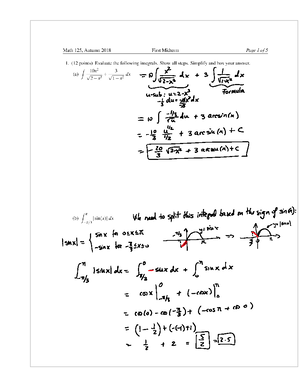 Math 125, Autumn 2018 First Midterm Page 1 of 5
1. (12 points) Evaluate the following integrals. Show all steps. Simplify and box your answer.
(a) ∫ 10x² / √(2 − x³) + 3 / √(1 − x²) dx = 10 ∫ x² / √(2−x³) dx + 3 ∫ 1 / √(1−x²) dx
u-sub: u = 2−x³ formula
−1/3 du = x² dx
= 10 ∫ −1/3 / √u du + 3 arcsin(x)
= −10/3 u^(1/2) / (1/2) + 3 arcsin(x) + C
= −20/3 √(2−x³) + 3 arcsin(x) + C
|sin(x)| dx We need to split this integral based on the sign of sin(x):
|sin x| = { sin x for 0≤x≤π
−sin x for −π/3≤x≤0
y = sin x
∫_{−π/3}^{π} |sin x| dx = ∫_{−π/3}^{0} −sin x dx + ∫_{0}^{π} sin x dx
= cos x |_{−π/3}^{0} + (−cos x) |_{0}^{π}
= cos(0) − cos(−π/3) + (−cos π + cos 0)
= (1 − 1/2) + (−(−1)+1)
= 1/2 + 2 = 5/2 = 2.5